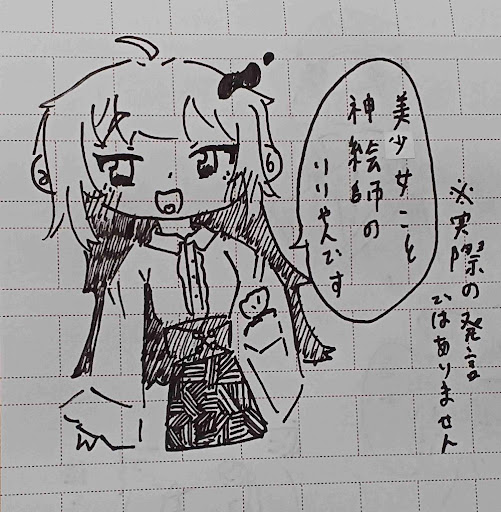 美少女こと
神絵師の
りりゃんです
※実際の発言
ではありません